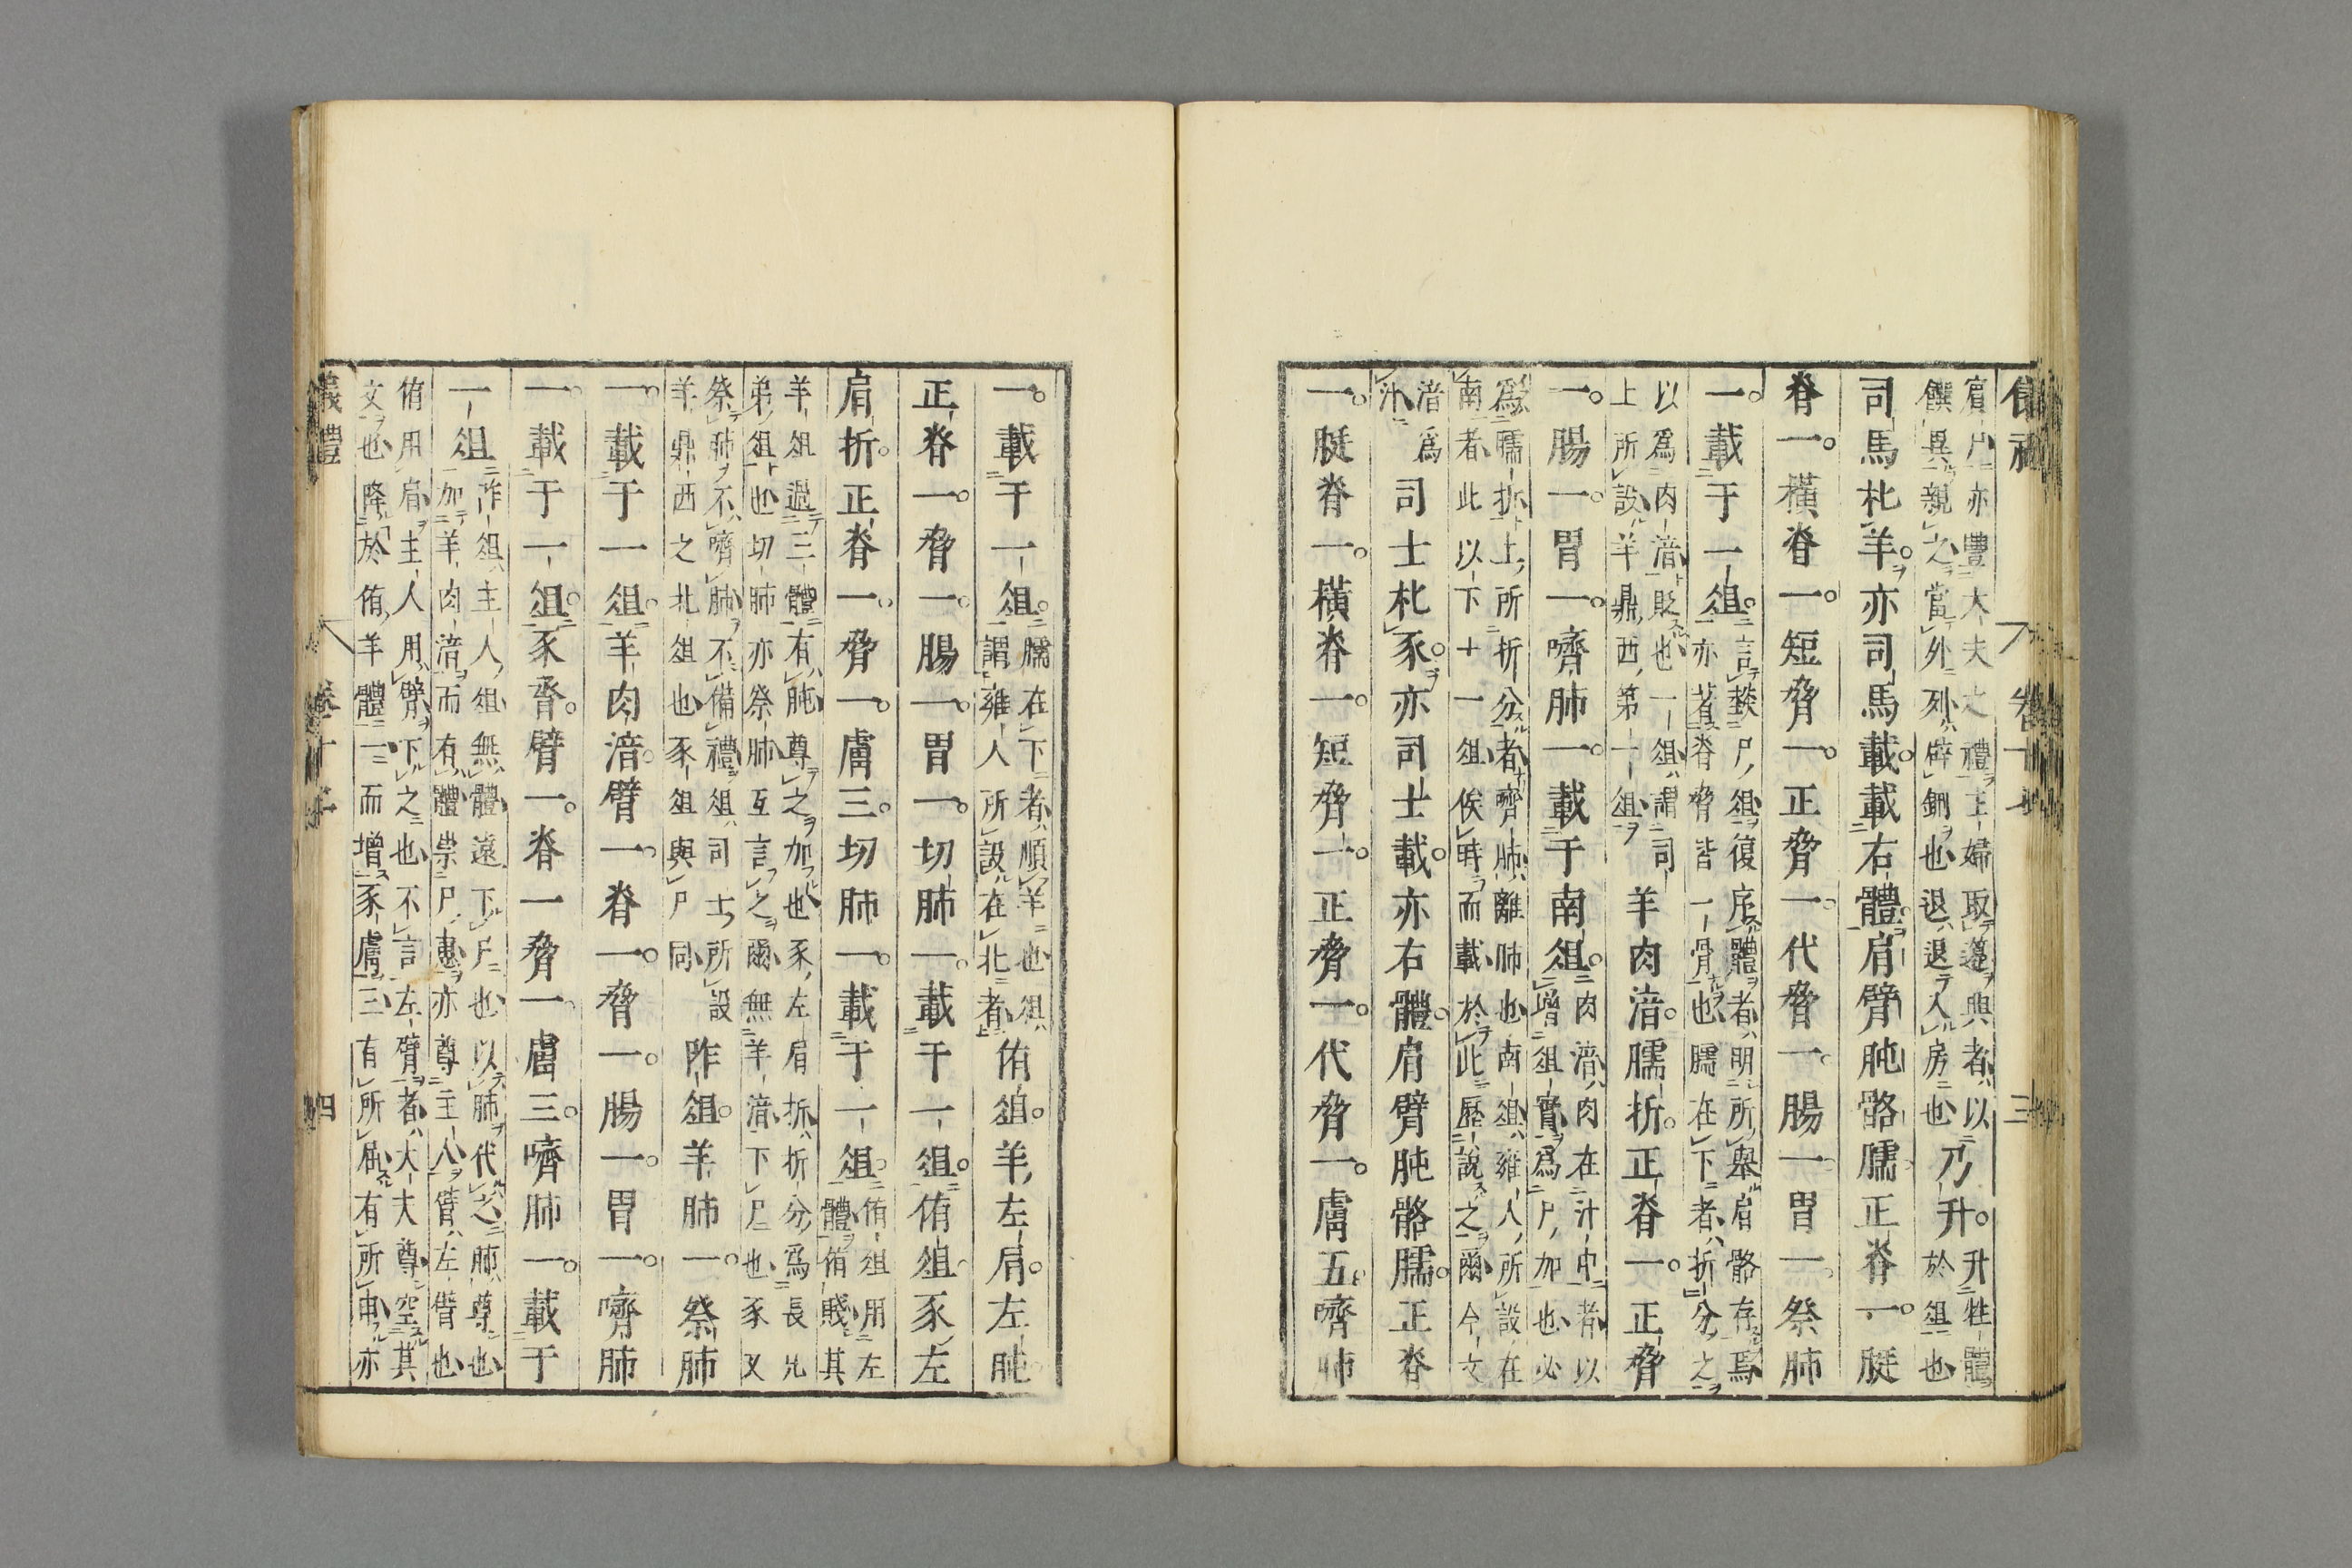 賓尸亦豐大夫之禮主婦取籩興者以
饌異親之當外列辟鉶也退退入房也
乃升
升牲體
於俎也
司馬朼羊亦司馬載載右體肩臂肫骼臑正脊一脡
脊一橫脊一短脅一正脅一代脅一腸一胃一祭肺
一載于一俎
言爇尸俎復序體者明所舉肩骼存焉
亦著脊脅皆一骨也臑在下者折分之
以爲肉湆貶也一俎謂司
上所設羊鼎西第一俎
羊肉湆臑折正脊一正脅
一腸一胃一嚌肺一載于南俎
肉湆肉在汁中者以
增俎實爲尸加也必
爲臑折上所折分者嚌肺離肺也南俎雍人所設在
南者此以下十一俎俟時而載於此歷說之爾今文
湆爲
汁
司士朼豕亦司士載亦右體肩臂肫骼臑正脊
一脡脊一橫脊一短脅一正脅一代脅一膚五嚌肺
卷十七 三
一載于一俎
臑在下者順羊也俎
謂雍人所設在北者
侑俎羊左肩左肫
正脊一脅一腸一胃一切肺一載于一俎侑俎豕左
肩折正脊一脅一膚三切肺一載于一俎
侑俎用左
體侑賤其
羊俎過三體有肫尊之加也豕左肩折折分爲長兄
弟俎也切肺亦祭肺互言之爾無羊湆下尸也豕又
祭肺不嚌肺不備禮俎司士所設
羊鼎西之北俎也豕俎與尸同
阼俎羊肺一祭肺
一載于一俎羊肉湆臂一脊一脅一腸一胃一嚌肺
一載于一俎豕脀臂一脊一脅一膚三嚌肺一載于
一俎
阼俎主人俎無體遠下尸也以肺代之肺尊也
加羊肉湆而有體崇尸惠亦尊主人臂左臂也
侑用肩主人用臂下之也不言左臂者大夫尊空其
文也降於侑羊體一而增豕膚三有所屈有所申亦
儀禮 卷十七 四